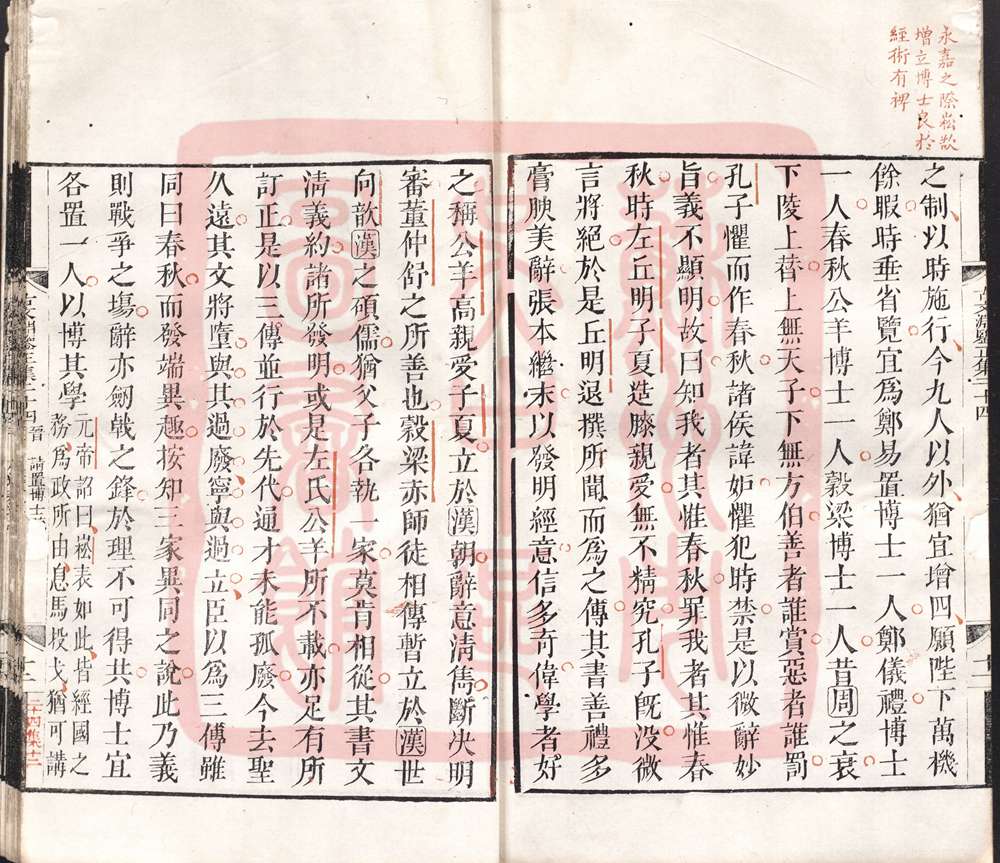 永嘉之際崧欲
增立博士良於
經術有裨
之制以時施行今九人以外猶宜增四願陛下萬機
餘暇時垂省覽宜爲鄭易置博士一人鄭儀禮博士
一人春秋公羊博士一人穀梁博士一人昔周之衰
下陵上替上無天子下無方伯善者誰賞惡者誰罰
孔子懼而作春秋諸侯諱妒懼犯時禁是以微辭妙
旨義不顯明故曰知我者其惟春秋罪我者其惟春
秋時左丘明子夏造膝親愛無不精究孔子既没微
言將絕於是丘明退撰所聞而爲之傳其書善禮多
膏腴美辭張本繼末以發明經意信多奇偉學者好
之稱公羊高親愛子夏立於漢朝辭意清儁斷決明
審董仲舒之所善也穀梁赤師徒相傳暫立於漢世
向歆漢之碩儒猶父子各執一家莫肯相從其書文
淸義約諸所發明或是左氏公羊所不載亦足有所
訂正是以三傳並行於先代通才未能孤廢今去聖
久遠其文將墮與其過廢寧與過立臣以爲三傳雖
同曰春秋而發端異趣按知三家異同之說此乃義
則戰爭之塲辭亦劒戟之鋒於理不可得共博士宜
各置一人以博其學元帝詔曰崧表如此皆經國之
務爲政所由息馬投戈猶可講
晉
請置博士
二十四集十二